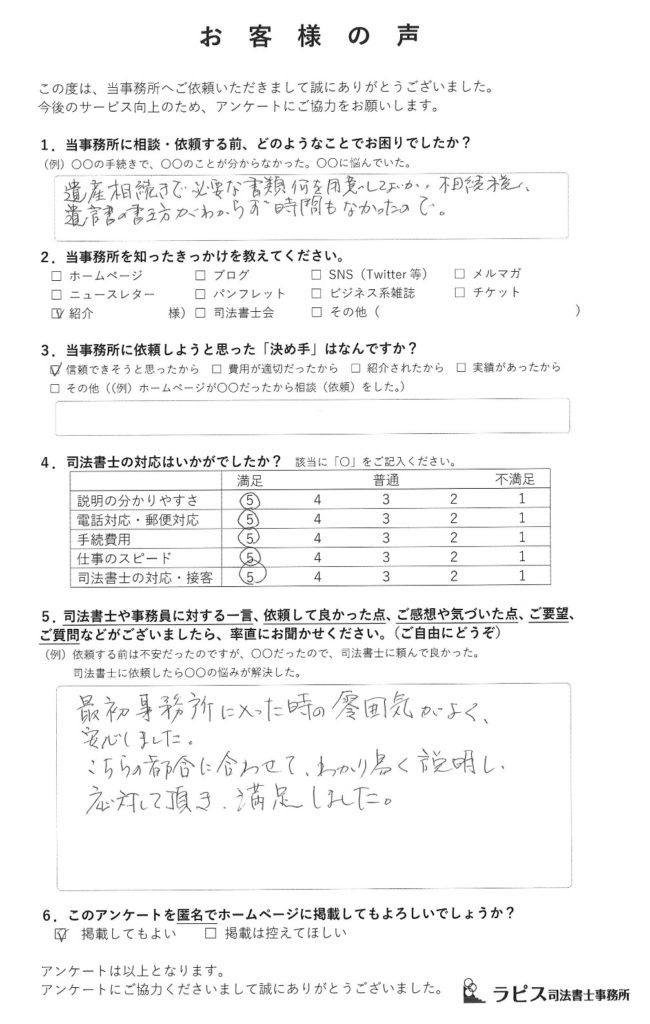 お客様の声
この度は、当事務所へご依頼いただきまして誠にありがとうございました。
今後のサービス向上のため、アンケートにご協力をお願いします。
1．当事務所に相談・依頼する前、どのようなことでお困りでしたか？
（例）〇〇の手続きで、〇〇のことが分からなかった。〇〇に悩んでいた。
遺産相続きで必要な書類何を用意してよいか、相続税、
遺言書の書き方がわからず時間もなかったので。
2．当事務所を知ったきっかけを教えてください。
□ ホームページ □ ブログ □ SNS（Twitter 等） □ メルマガ
□ ニュースレター □ パンフレット □ ビジネス系雑誌 □ チケット
☑ 紹介 様）□ 司法書士会 □ その他（ ）
3．当事務所に依頼しようと思った「決め手」はなんですか？
☑ 信頼できそうと思ったから □ 費用が適切だったから □ 紹介されたから □ 実績があったから
□ その他（（例）ホームページが〇〇だったから相談（依頼）をした。）
4．司法書士の対応はいかがでしたか？ 該当に「〇」をご記入ください。
満足 普通 不満足
説明の分かりやすさ ⑤ 4 3 2 1
電話対応・郵便対応 ⑤ 4 3 2 1
手続費用 ⑤ 4 3 2 1
仕事のスピード ⑤ 4 3 2 1
司法書士の対応・接客 ⑤ 4 3 2 1
5．司法書士や事務員に対する一言、依頼して良かった点、ご感想や気づいた点、ご要望、
ご質問などがございましたら、率直にお聞かせください。（ご自由にどうぞ）
（例）依頼する前は不安だったのですが、〇〇だったので、司法書士に頼んで良かった。
司法書士に依頼したら〇〇の悩みが解決した。
最初事務所に入った時の雰囲気がよく、
安心しました。
こちらの都合に合わせて、わかり易く説明し、
応対して頂き、満足しました。
6．このアンケートを匿名でホームページに掲載してもよろしいでしょうか？
☑ 掲載してもよい □ 掲載は控えてほしい
アンケートは以上となります。
アンケートにご協力くださいまして誠にありがとうございました。
ラピス司法書士事務所